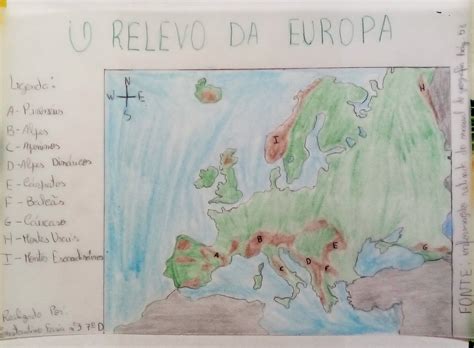 O RELEVO DA EUROPA
Legenda:
A - Pirinéus
B - Alpes
C - Apeninos
D - Alpes Dináricos
E - Cárpatos
F - Balcãs
G - Cáucaso
H - Montes Urais
I - Montes Escandinavos
N
W E
S
I
H
A
B
C
D
E
F
G
Realizado Por:
nº9 7º D
FONTE: manual de geografia